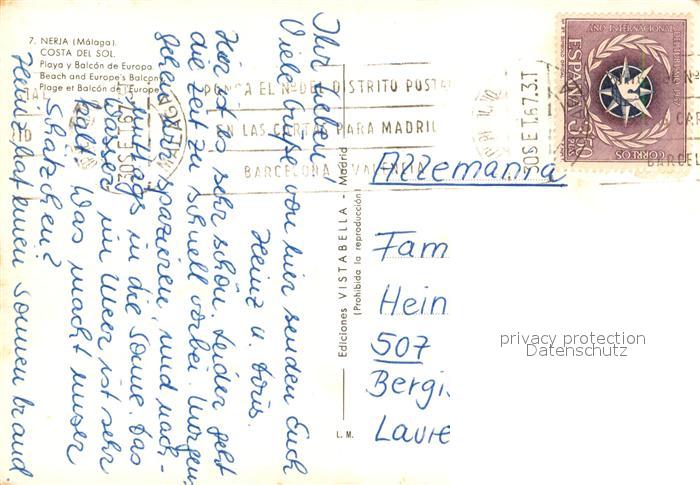 7. NERJA (Málaga).
COSTA DEL SOL.
Playa y Balcón de Europa.
Beach and Europe's Balcony
Plage et Balcón de l'Europe
Ihr Lieben,
Viele Grüße von hier senden Euch
Heinz u. Doris.
Hier ist es sehr schön. Leider geht
die Zeit zu schnell vorbei. Morgens
gehen wir spazieren, und nach-
mittags in die Sonne. Das
Wasser im Meer ist sehr
kalt. Was macht unser
Schätzchen?
Heinz hat einen Sonnenbrand
PONGA EL N.º DEL DISTRITO POSTAL
EN LAS CARTAS PARA MADRID
BARCELONA Y VALENCIA
MALAGA
20 SET. 67
Ediciones VISTABELLA - Madrid
(Prohibida la reproducción)
L. M.
ESPAÑA
CORREOS
3'50
PTAS
AÑO INTERNACIONAL
Allemania
Fam
Hein
507
Bergi
Laure
privacy protection
Datenschutz